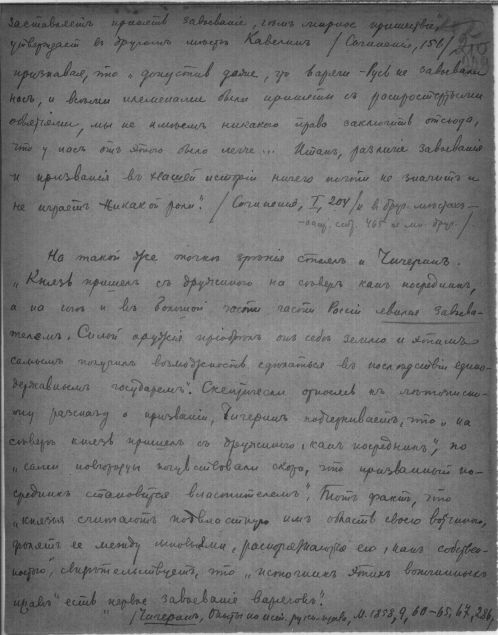 заставляетъ принять завоеваніе, чѣмъ мирное пришествіе",
утверждаетъ въ другомъ мѣстѣ Кавелинъ / Сочиненія, 156/
признавая, что „допустив даже, что варяги-Русь не завоевали
насъ, и всѣми племенами были приняты съ распростертыми
объятіями, мы не имѣемъ никакого право заключить отсюда,
что у насъ отъ этого было легче... Итакъ, различіе завоеванія
и призванія въ нашей исторіи ничего почти не значитъ и
не играетъ никакой роли". / Сочиненія, I, 204/ и въ друг. мѣстахъ
стр. 465 и мн. друг./
На такой же точкѣ зрѣнія стоялъ и Чичеринъ.
„Князь пришелъ съ дружиною на сѣверъ какъ посредникъ,
а на югѣ и въ большой части Россіи явился завоева-
телемъ. Силой оружія пріобрѣлъ онъ себѣ землю и этимъ
самымъ получилъ возможность сдѣлаться въ послѣдствіи едино-
державнымъ государемъ". Скептически относясь къ лѣтописно-
му разсказу о призваніи, Чичеринъ подчеркиваетъ, что „на
сѣверъ князь пришелъ съ дружиною, какъ посредникъ", но
„сами новгородцы почувствовали скоро, что призванный по-
средникъ становится властителемъ". Тотъ фактъ, что
„князья считаютъ подвластную имъ область своею вотчиною,
дѣлятъ ее между сыновьями, распоряжаются ею, какъ собствен-
ностью, свидѣтельствуетъ, что „источникъ этихъ вотчинныхъ
правъ" есть „первое завоеваніе варяговъ".
/Чичеринъ, Опыты по ист. русск. права, М. 1858, 9, 60-65, 67, 286,